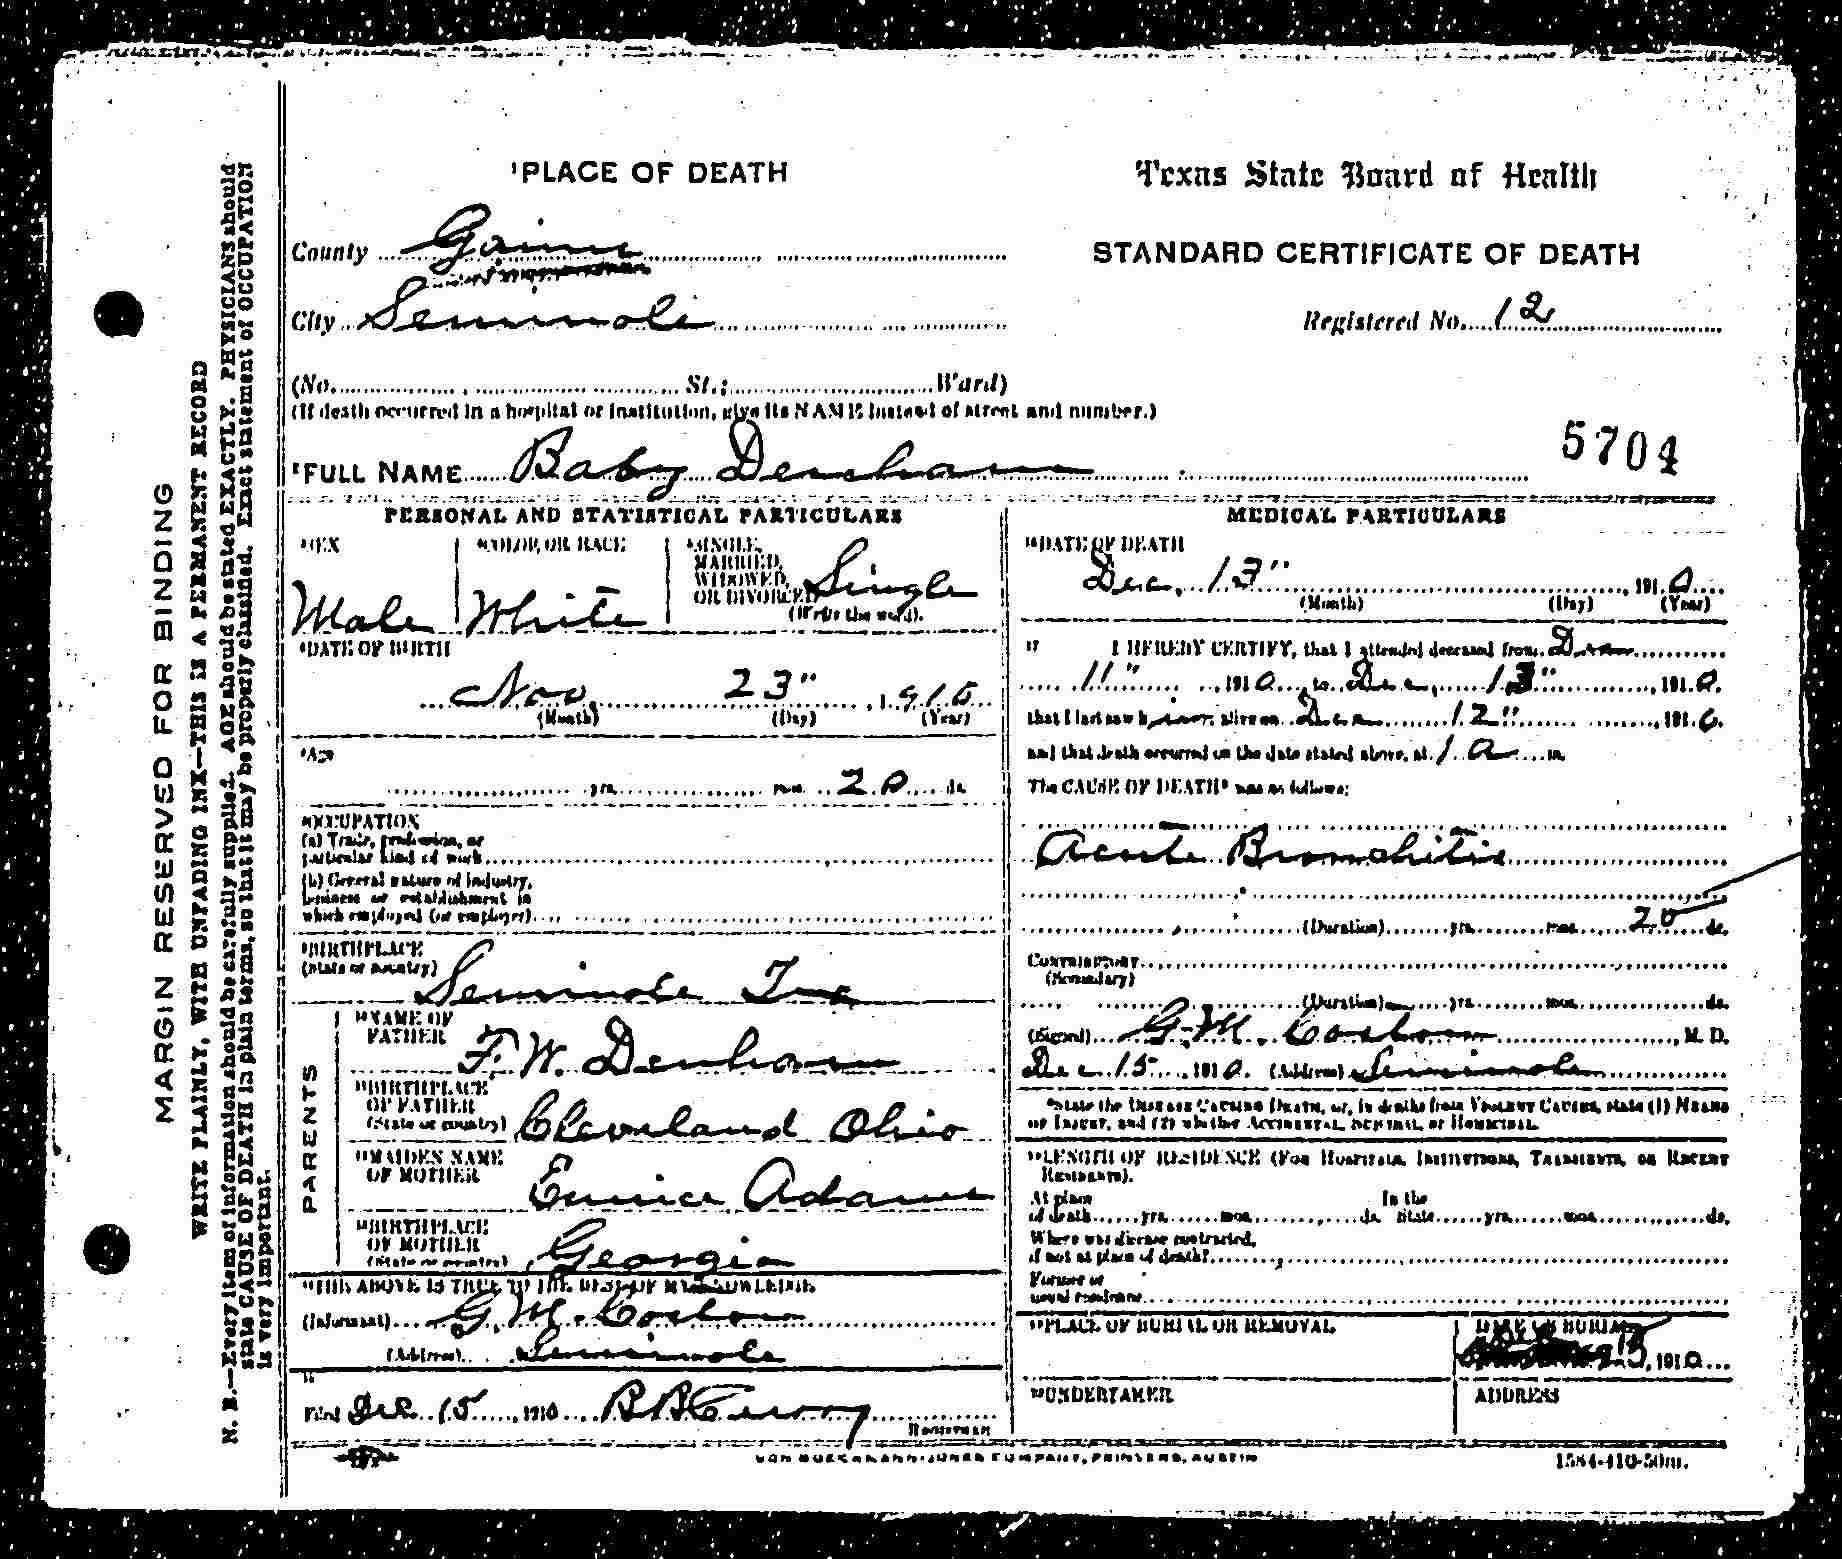 MARGIN RESERVED FOR BINDING
WRITE PLAINLY, WITH UNFADING INK—THIS IS A PERMANENT RECORD
N. B.—Every item of information should be carefully supplied. AGE should be stated EXACTLY. PHYSICIANS should
state CAUSE OF DEATH in plain terms, so that it may be properly classified. Exact statement of OCCUPATION
is very important.
1PLACE OF DEATH
Texas State Board of Health
County Gaines
STANDARD CERTIFICATE OF DEATH
City Seminole
Registered No. 12
(No. St.; Ward)
(If death occurred in a hospital or institution, give its NAME instead of street and number.)
5704
2FULL NAME Baby Denham
PERSONAL AND STATISTICAL PARTICULARS
3SEX
Male
4COLOR OR RACE
White
5SINGLE,
MARRIED,
WIDOWED,
OR DIVORCED
(Write the word).
Single
6DATE OF BIRTH
Nov. 23" , 1910
(Month) (Day) (Year)
7Age
yrs. mos. 20 ds.
8OCCUPATION
(a) Trade, profession, or
particular kind of work
(b) General nature of industry,
business or establishment in
which employed (or employer)
9BIRTHPLACE
(State or country)
Seminole Tex
PARENTS
10NAME OF
FATHER
F. W. Denham
11BIRTHPLACE
OF FATHER
(State or country)
Cleveland Ohio
12MAIDEN NAME
OF MOTHER
Eunice Adams
13BIRTHPLACE
OF MOTHER
(State or country)
Georgia
14THE ABOVE IS TRUE TO THE BEST OF MY KNOWLEDGE
(Informant) G. M.
(Address) Seminole
15
Filed Dec 15, 1910
Registrar
MEDICAL PARTICULARS
16DATE OF DEATH
Dec, 13" , 1910
(Month) (Day) (Year)
17 I HEREBY CERTIFY, that I attended deceased from Dec
11" , 1910, to Dec, 13" , 1910,
that I last saw him alive on Dec 12" , 1910,
and that death occurred on the date stated above, at 1 a m.
The CAUSE OF DEATH* was as follows:
Acute Bronchitis
(Duration) yrs. mos. 20 ds.
CONTRIBUTORY
(Secondary)
(Duration) yrs. mos. ds.
(Signed) G. M. , M. D.
Dec 15, 1910. (Address) Seminole
*State the DISEASE CAUSING DEATH, or, in deaths from VIOLENT CAUSES, state (1) MEANS
OF INJURY, and (2) whether ACCIDENTAL, SUICIDAL, or HOMICIDAL.
18LENGTH OF RESIDENCE (FOR HOSPITALS, INSTITUTIONS, TRANSIENTS, OR RECENT
RESIDENTS).
At place In the
of death yrs. mos. ds. State yrs. mos. ds.
Where was disease contracted,
if not at place of death?
Former or
usual residence
19PLACE OF BURIAL OR REMOVAL
DATE OF BURIAL
15, 1910
20UNDERTAKER
ADDRESS
VON BOECKMANN-JONES COMPANY, PRINTERS, AUSTIN
1584-410-50m.